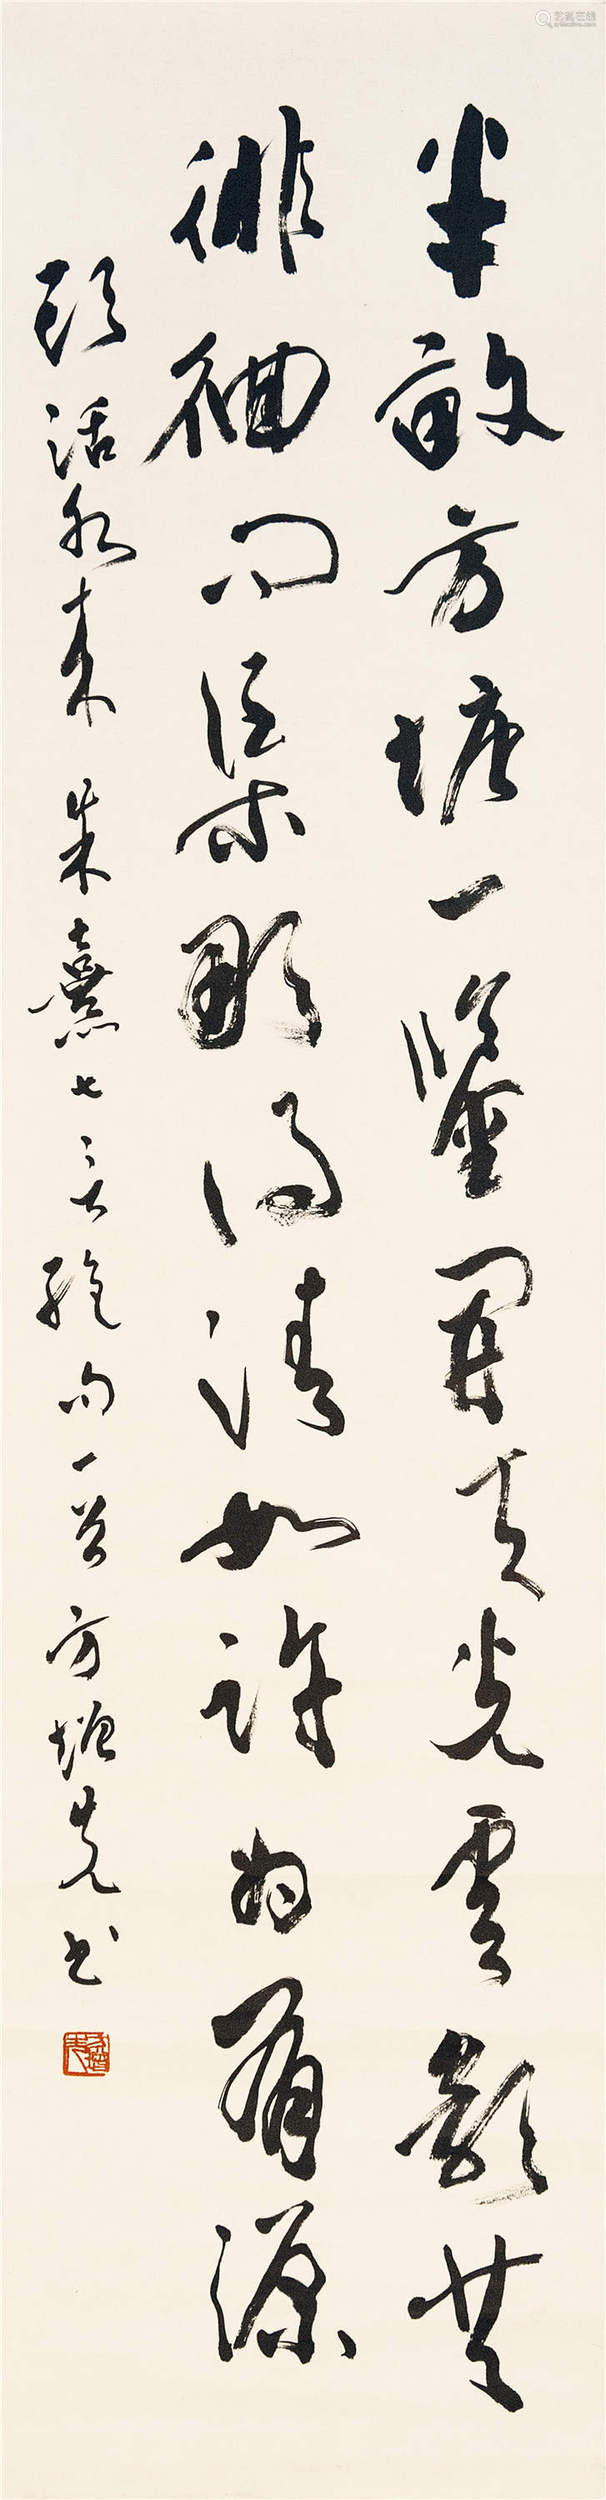 半畝方塘一鑒開天光雲影共
徘徊問渠那得清如許為有源
頭活水來 朱熹七言絕句一首 方增先书
方增先
艺狐在线